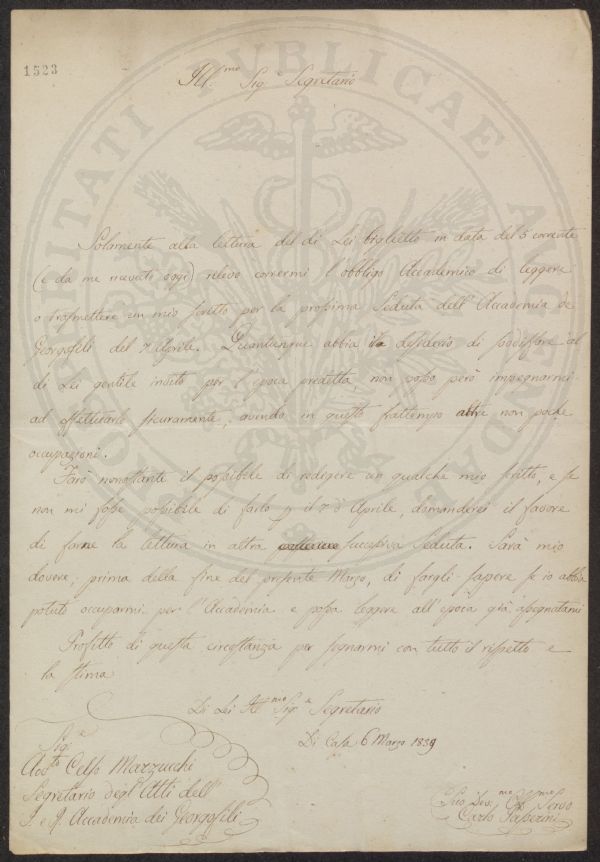 1523
Ill.mo Sig.e Segretario
PROSPERITATI PUBLICAE AUGENDAE
Solamente alla lettura del di Lei biglietto in data del 5 corrente
(e da me ricevuto oggi) rilevo corrermi l'obbligo Accademico di leggere
o trasmettere un mio scritto per la prossima Seduta dell'Accademia de
Georgofili del 7 Aprile. Quantunque abbia desiderio di sodisfare al
di Lei gentile invito per l'epoca predetta, non posso però impegnarmi
ad effettuarlo sicuramente, avendo in questo frattempo altre non poche
occupazioni.
Farò nonostante il possibile di redigere un qualche mio scritto, e se
non mi fosse possibile di farlo p il 7 d'Aprile, domanderei il favore
di farne la lettura in altra successiva Seduta. Sarà mio
dovere, prima della fine del presente Marzo, di fargli sapere se io abbia
potuto occuparmi per l'Accademia e possa leggere all'epoca già assegnatami
Profitto di questa circostanza per segnarmi con tutto il rispetto e
la stima
Di Lei Ill.mo Sig.e Segretario
Di Casa 6 Marzo 1839
Sig.e
Celso Marzucchi
Segretario degl'Atti dell'
I. e R. Accademia dei Georgofili
Suo Dev.mo Servo
Carlo Passerini